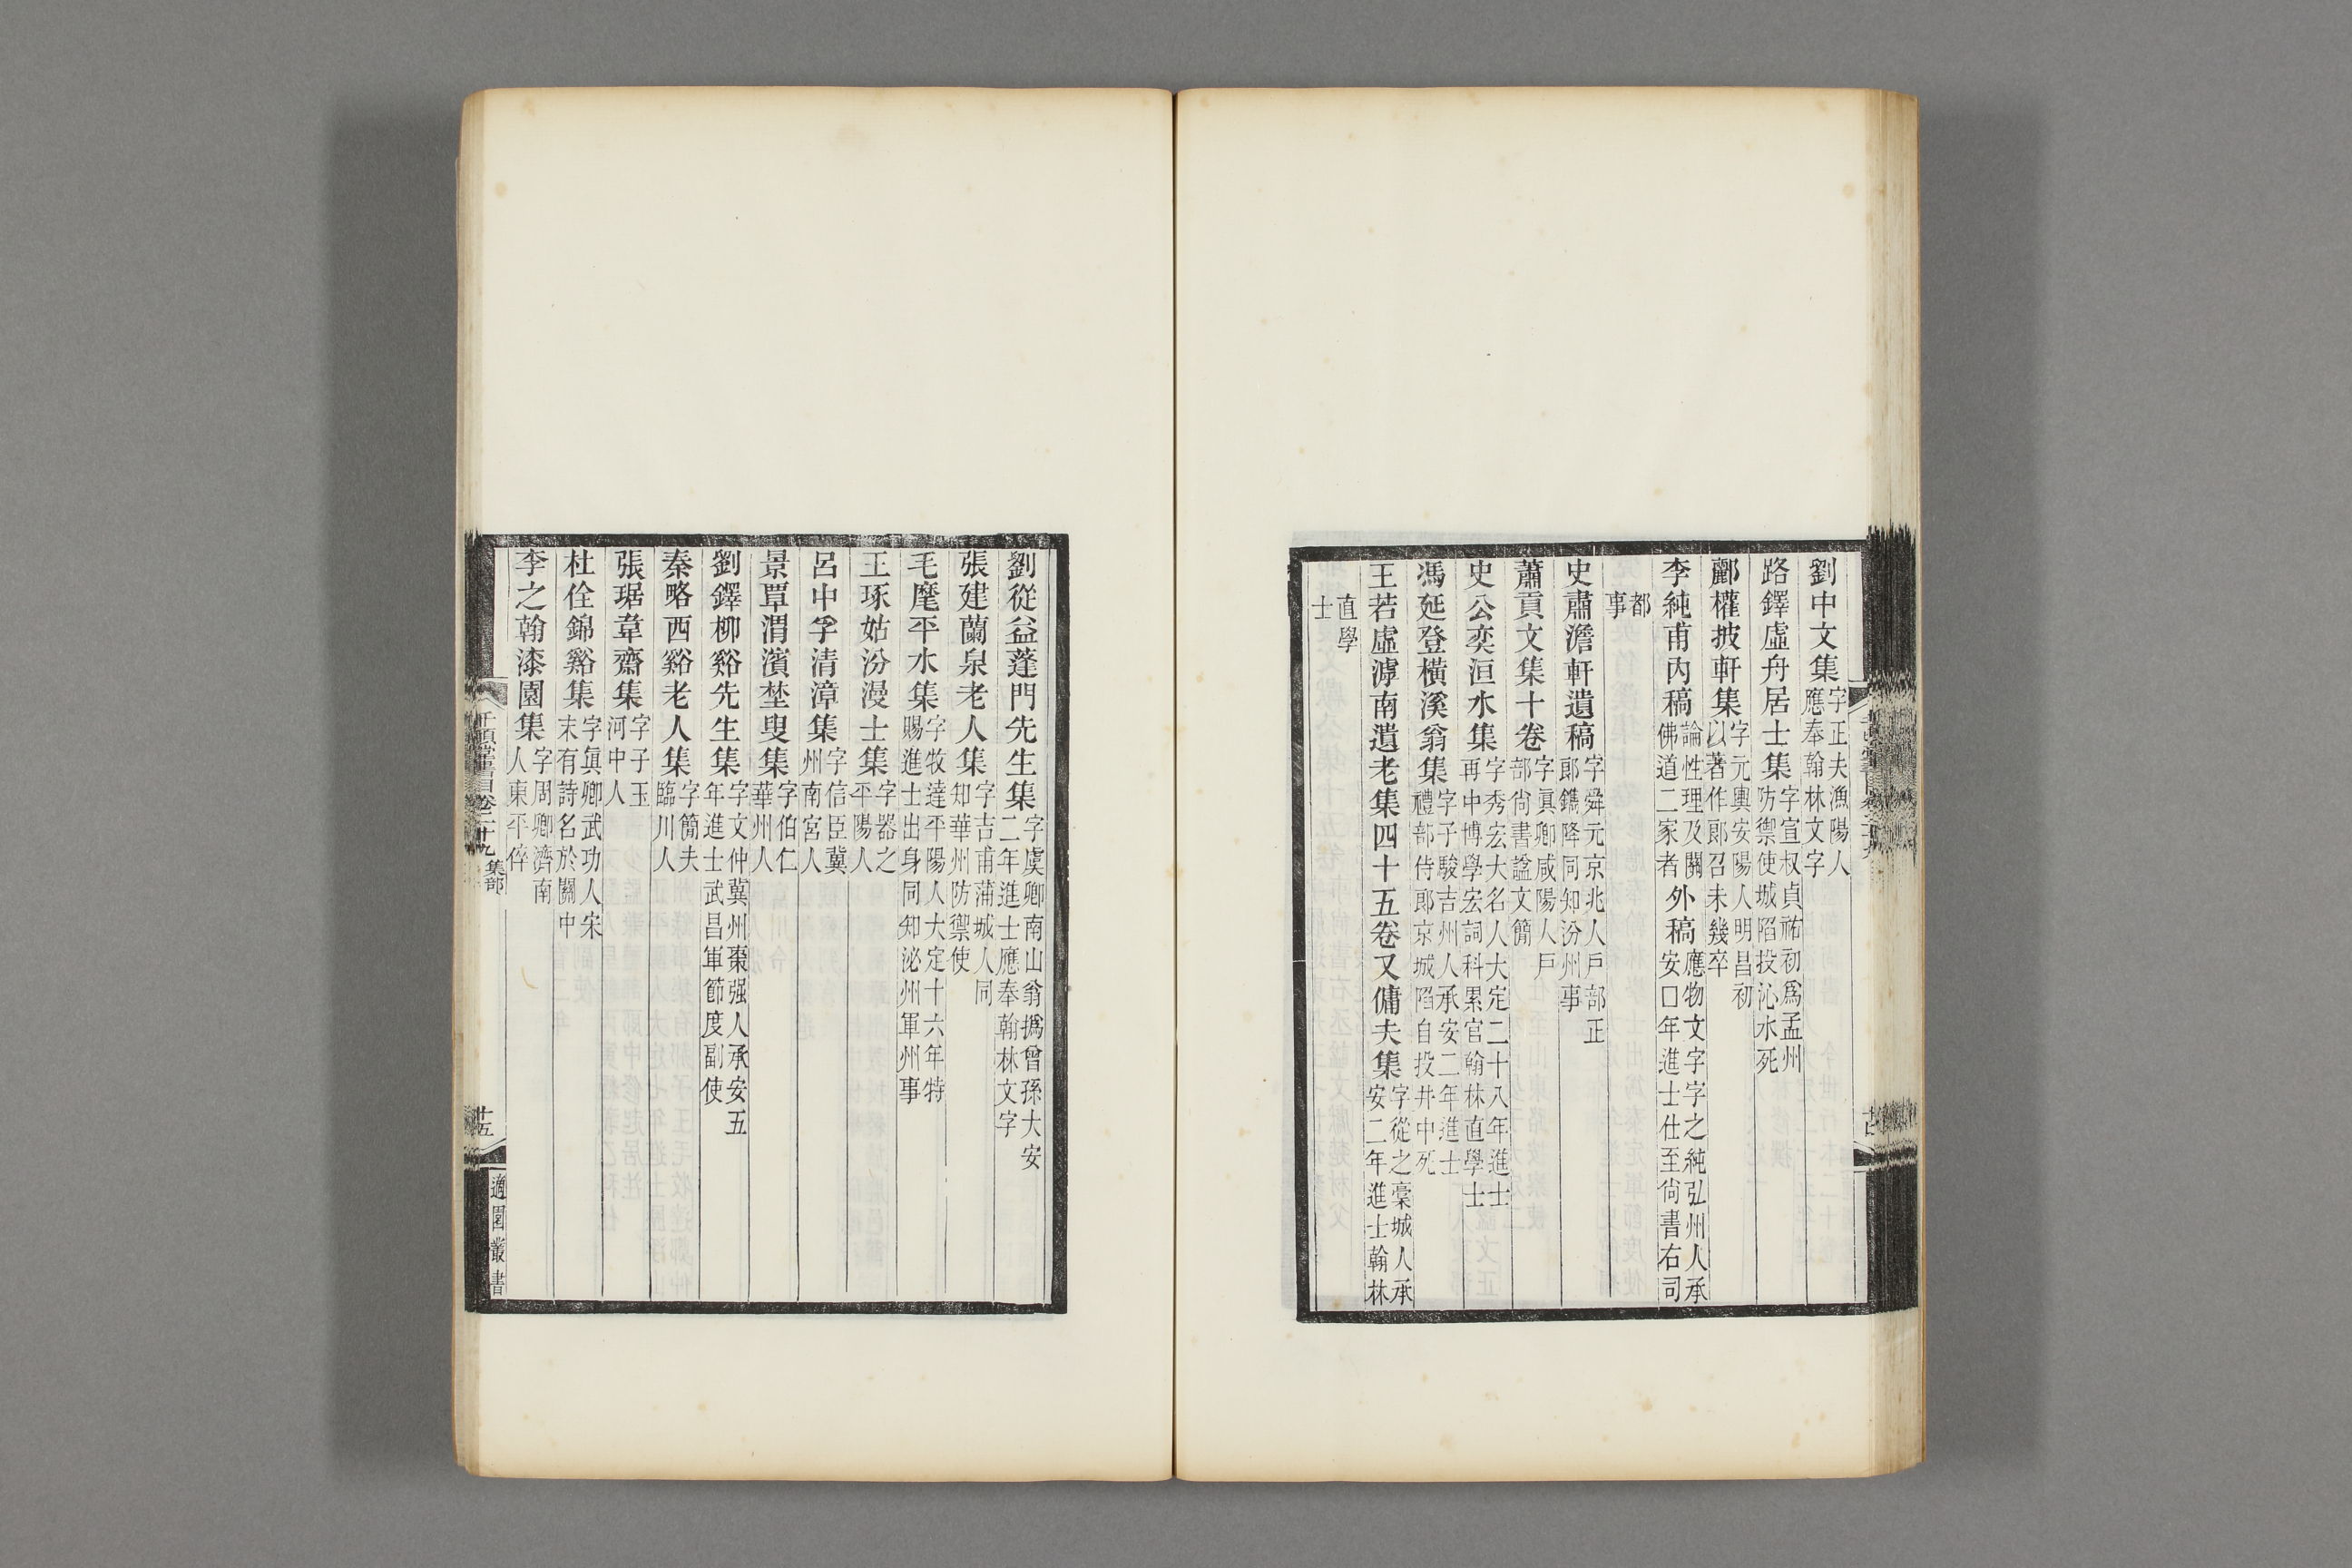 劉中文集字正夫漁陽人應奉翰林文字
路鐸虛舟居士集字宣权貞祐初爲孟州防禦使城陷投沁水死
酈權披軒集字元輿安陽人明昌初以著作郎召未幾卒
李純甫內稿論性理及關佛道二家者外稿應物文字字之純弘州人承安口年進士仕至尙書右司
都事
史肅澹軒遺稿字舜元京兆人戶部正郎鐫降同知汾州事
蕭貢文集十卷字眞卿咸陽人戶部尙書諡文簡
史公奕洹水集字秀宏大名人大定二十八年進士再中博學宏詞科累官翰林直學士
馮延登橫溪翁集字子駿吉州人承安二年進士禮部侍郎京城陷自投井中死
王若虛滹南遺老集四十五卷又傭夫集字從之槀城人承安二年進士翰林
直學士
劉從益蓬門先生集字虞卿南山翁撝曾孫大安二年進士應奉翰林文字
張建蘭泉老人集字吉甫蒲城人同知華州防禦使
毛麾平水集字牧達平陽人大定十六年特賜進士出身同知泌州軍州事
王琢姑汾漫士集字器之平陽人
呂中孚清漳集字信臣冀州南宮人
景覃渭濱埜叟集字伯仁華州人
劉鐸柳谿先生集字文仲冀州棗强人承安五年進士武昌軍節度副使
秦略西谿老人集字簡夫臨川人
張琚韋齋集字子玉河中人
杜佺錦谿集字眞卿武功人宋末有詩名於關中
李之翰漆園集字周卿濟南人東平倅
千頃堂書目卷二十九 集部
廿五
適園叢書